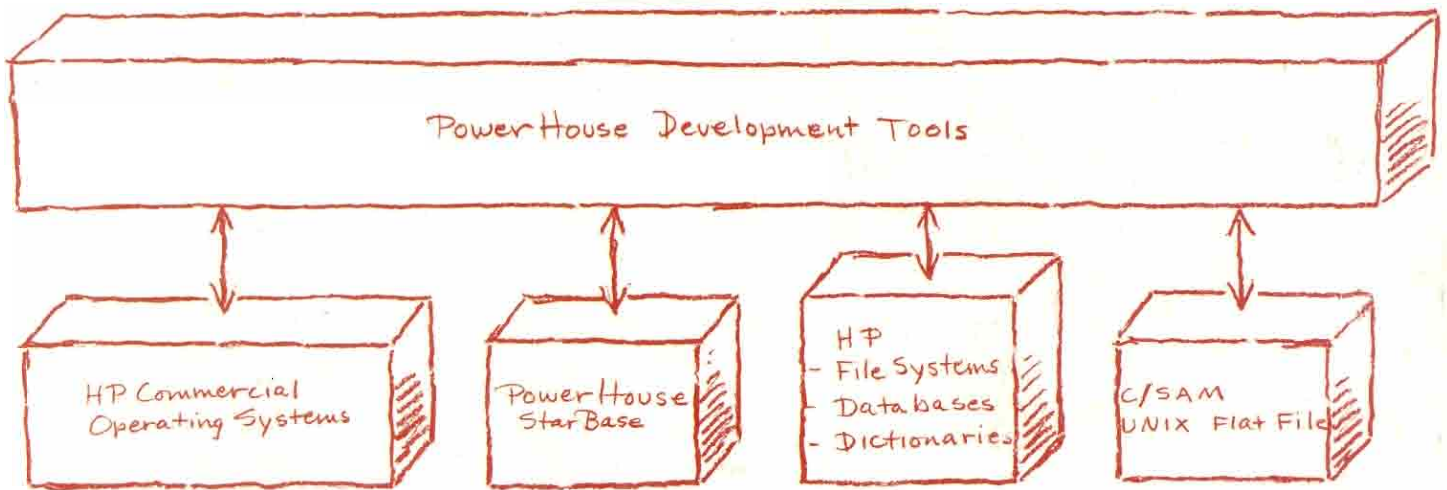 PowerHouse Development Tools
HP Commercial
Operating Systems
PowerHouse
StarBase
HP
- File Systems
- Databases
- Dictionaries
C/SAM
UNIX Flat File